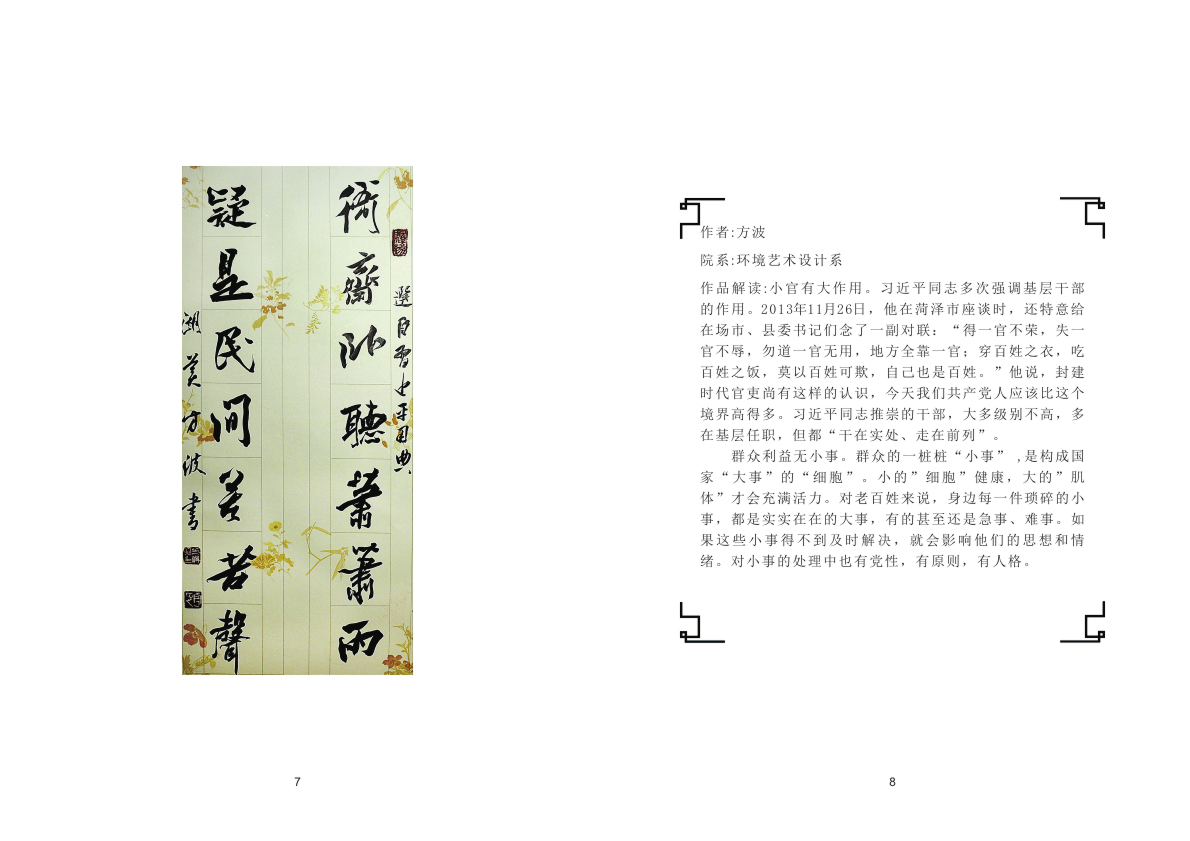 選自習近平用典
衙齋臥聽蕭蕭雨
疑是民間疾苦聲
湖美方波書
7
作者:方波
院系:环境艺术设计系
作品解读:小官有大作用。习近平同志多次强调基层干部
的作用。2013年11月26日，他在菏泽市座谈时，还特意给
在场市、县委书记们念了一副对联：“得一官不荣，失一
官不辱，勿道一官无用，地方全靠一官；穿百姓之衣，吃
百姓之饭，莫以百姓可欺，自己也是百姓。”他说，封建
时代官吏尚有这样的认识，今天我们共产党人应该比这个
境界高得多。习近平同志推崇的干部，大多级别不高，多
在基层任职，但都“干在实处、走在前列”。
群众利益无小事。群众的一桩桩“小事” ,是构成国
家“大事”的“细胞”。小的”细胞”健康，大的”肌
体”才会充满活力。对老百姓来说，身边每一件琐碎的小
事，都是实实在在的大事，有的甚至还是急事、难事。如
果这些小事得不到及时解决，就会影响他们的思想和情
绪。对小事的处理中也有党性，有原则，有人格。
8